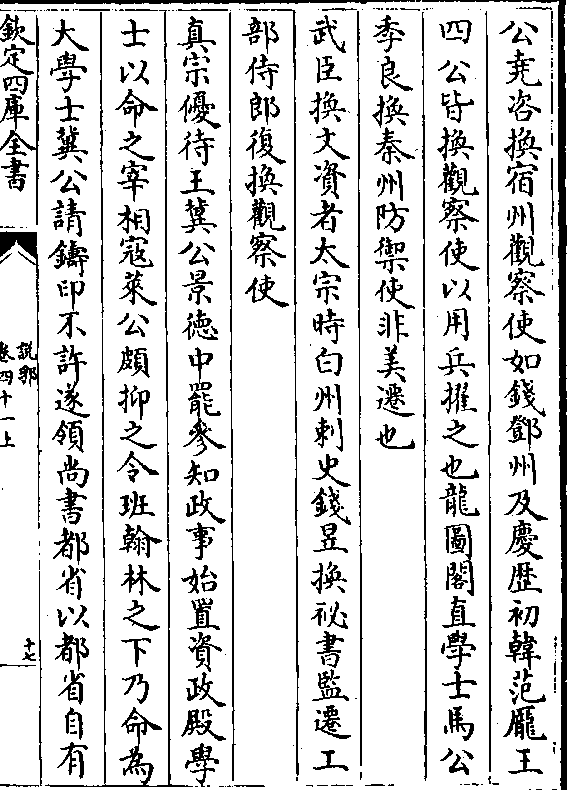 公堯咨換宿州觀察使如錢鄧州及慶歴初韓范龎王
四公皆換觀察使以用兵擢之也龍圖閣直學士馬公
季良換秦州防禦使非美遷也
武臣換文資者太宗時白州刺史錢昱換祕書監遷工
部侍郎復換觀察使
真宗優待王冀公景德中罷參知政事始置資政殿學
士以命之宰相寇萊公頗抑之令班翰林之下乃命為
大學士冀公請鑄印不許遂領尚書都省以都省自有
欽定四庫全書
說郛
卷四十一上
十七